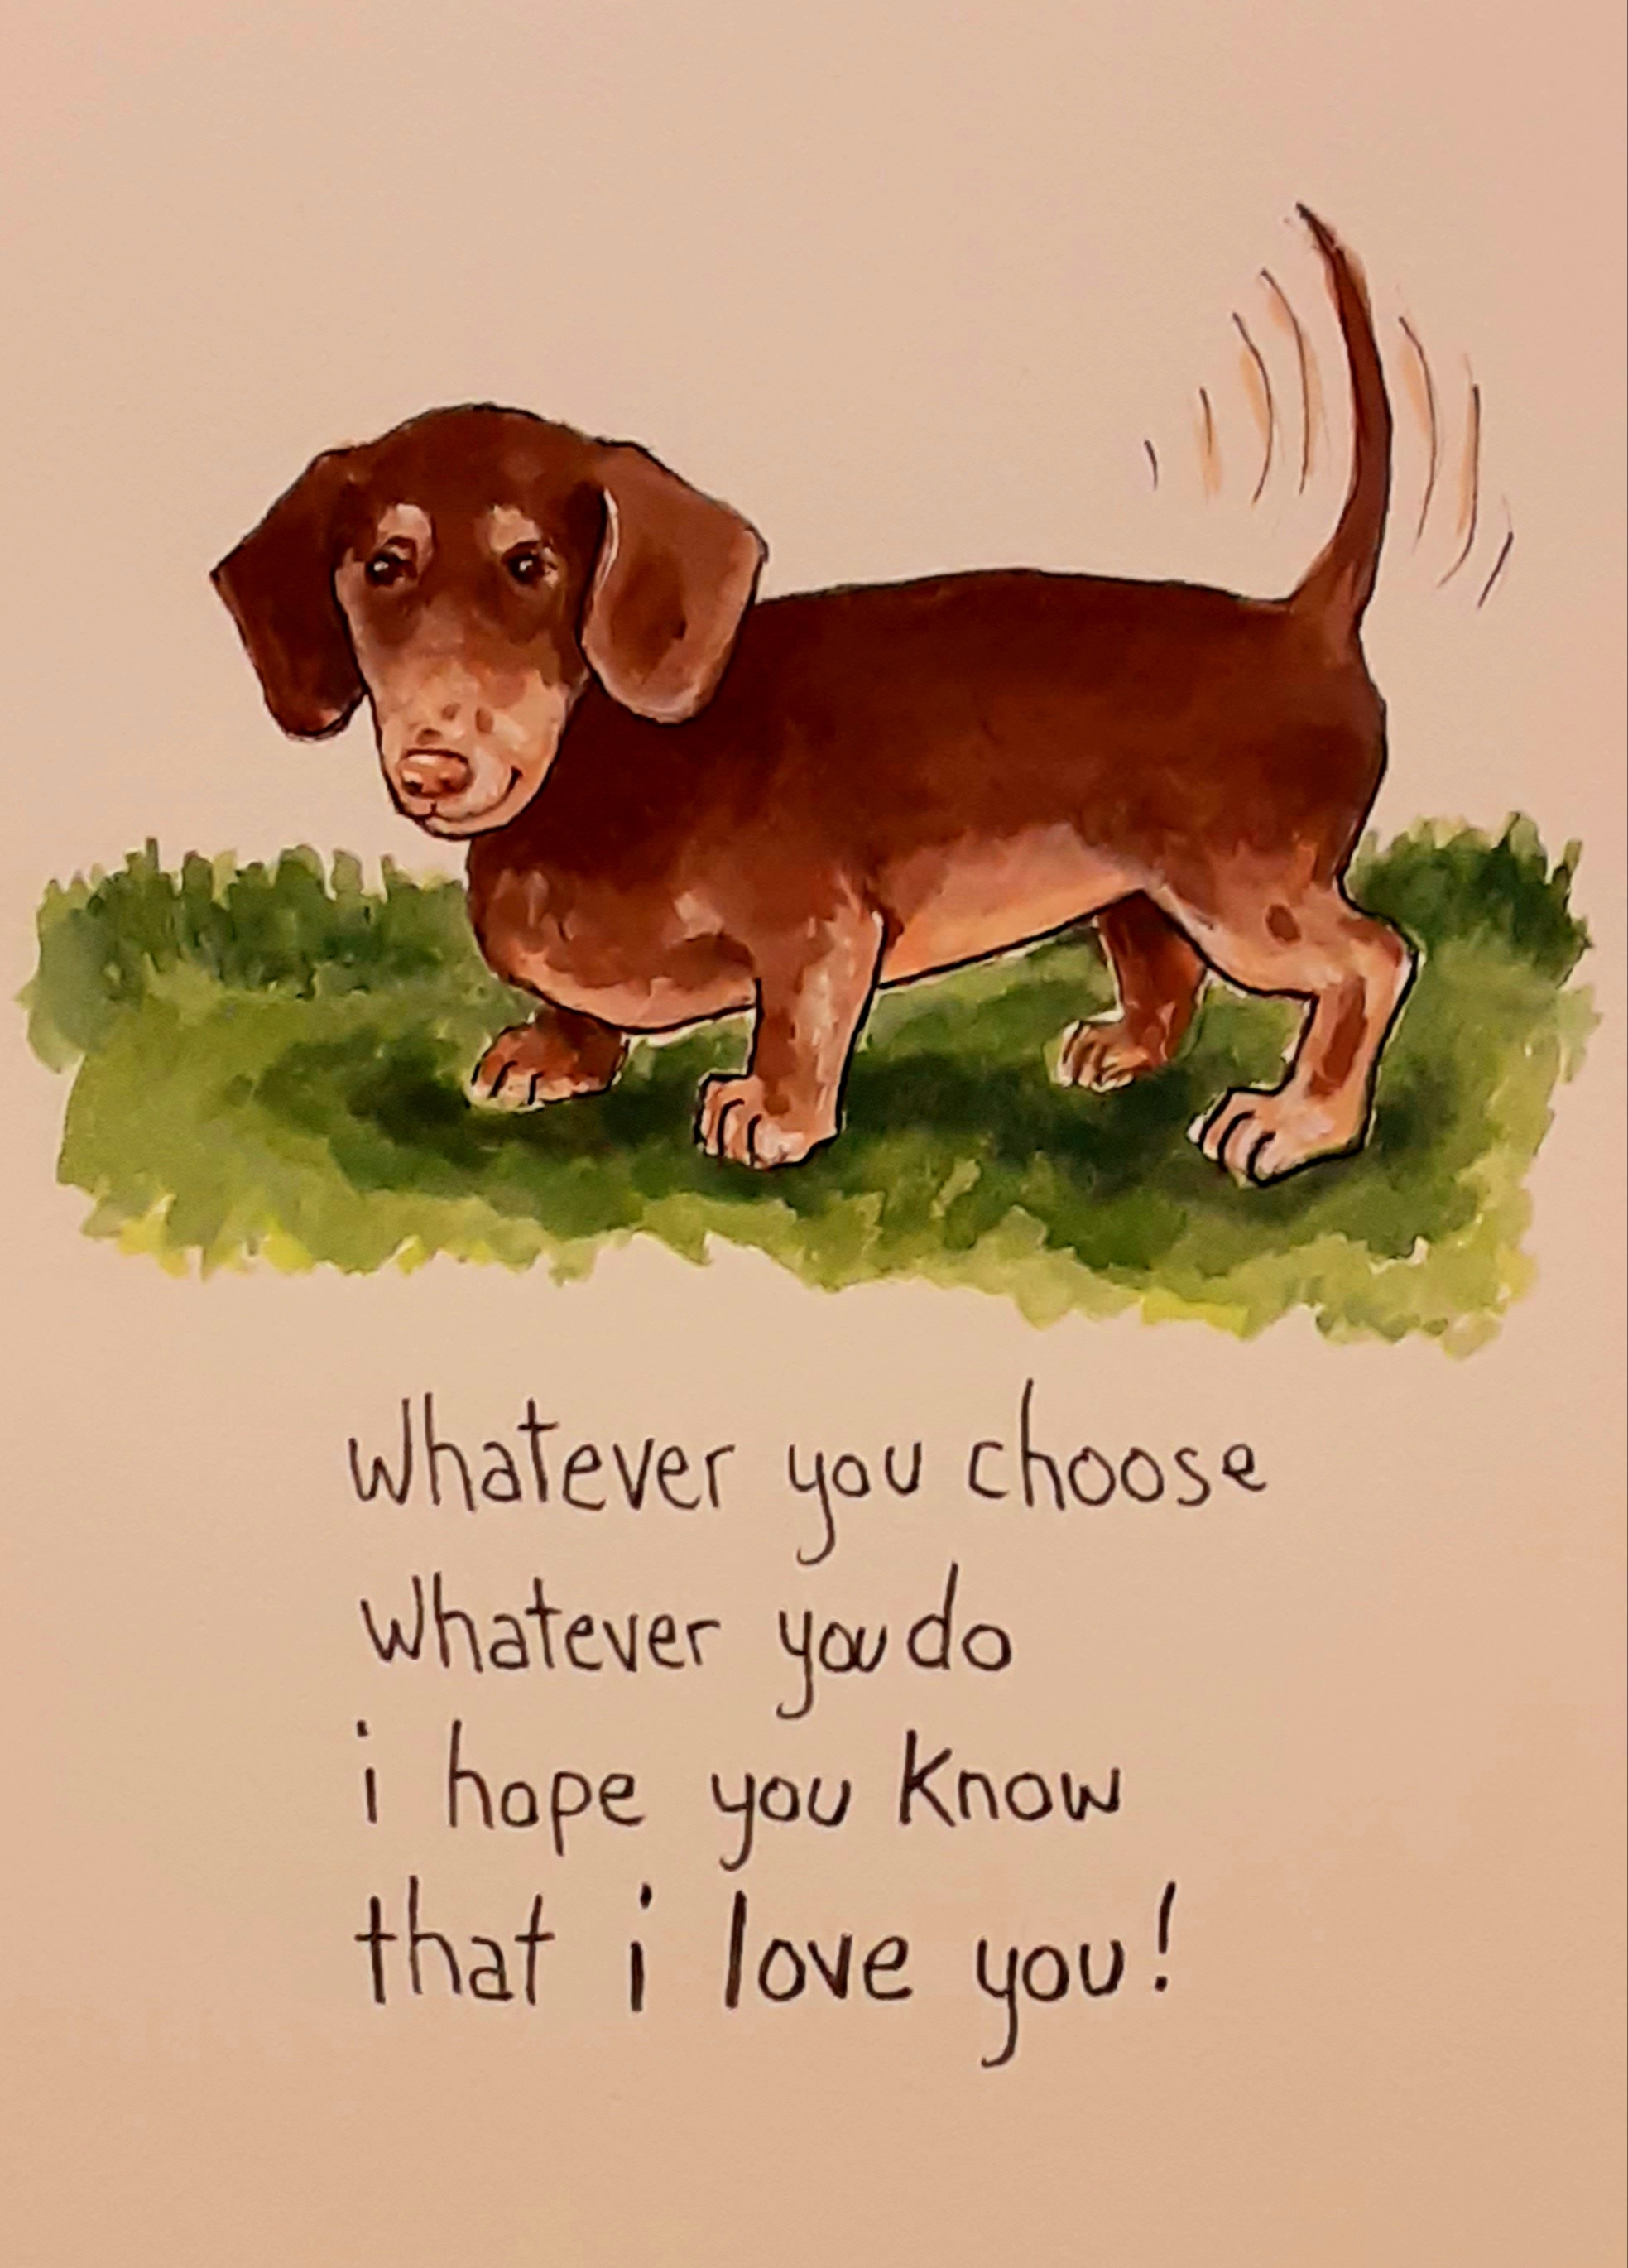 Whatever you choose
Whatever you do
i hope you know
that i love you!